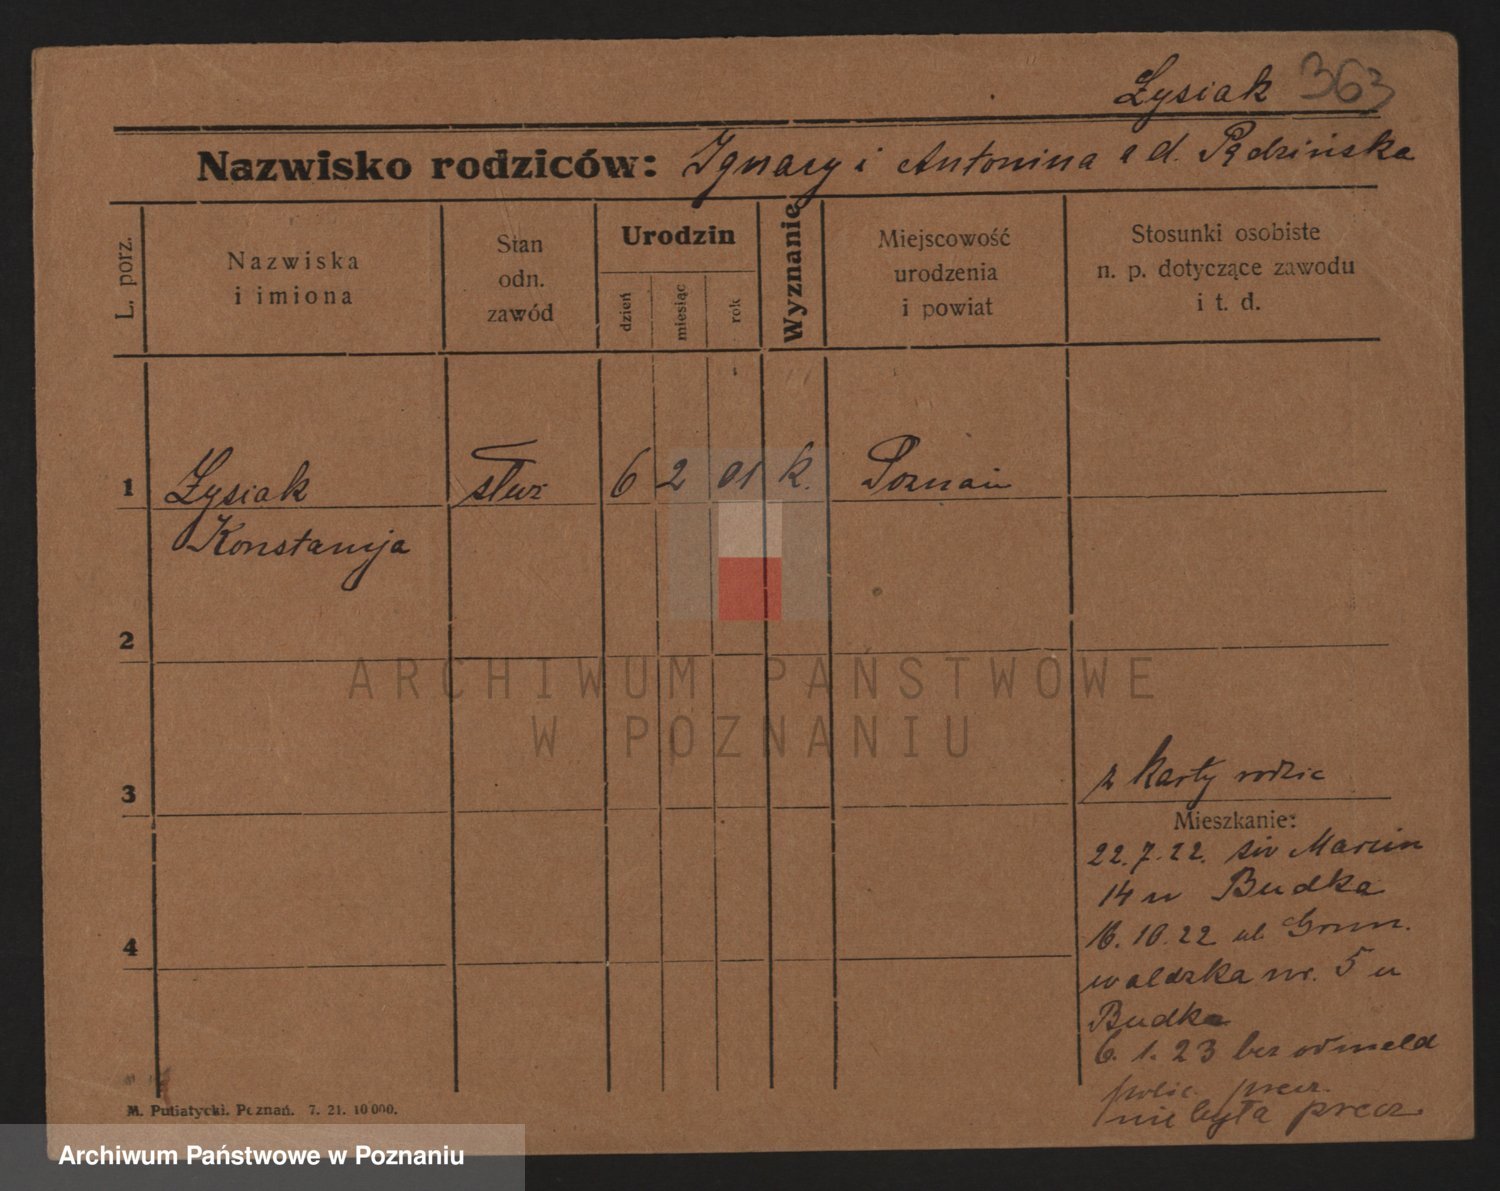 Łysiak 363
Nazwisko rodziców: Ignacy i Antonina z d. Pędzińska
L. porz.
Nazwiska
i imiona
Stan
odn.
zawód
Urodzin
dzień
miesiąc
rok
Wyznanie
Miejscowość
urodzenia
i powiat
Stosunki osobiste
n. p. dotyczące zawodu
i t. d.
1 Łysiak służ 6 2 01 k. Poznań
Konstancja
2
ARCHIWUM PAŃSTWOWE
W POZNANIU
z karty rodzic
3
Mieszkanie:
22.7.22. św Marcin
14 u Budka
16.10.22 ul. Grun.
waldzka nr. 5 u
Budka
4
6.1.23 bez odmeld
polic. precz.
nie była precz
M. Putiatycki. Poznań. 7. 21. 10 000.
Archiwum Państwowe w Poznaniu